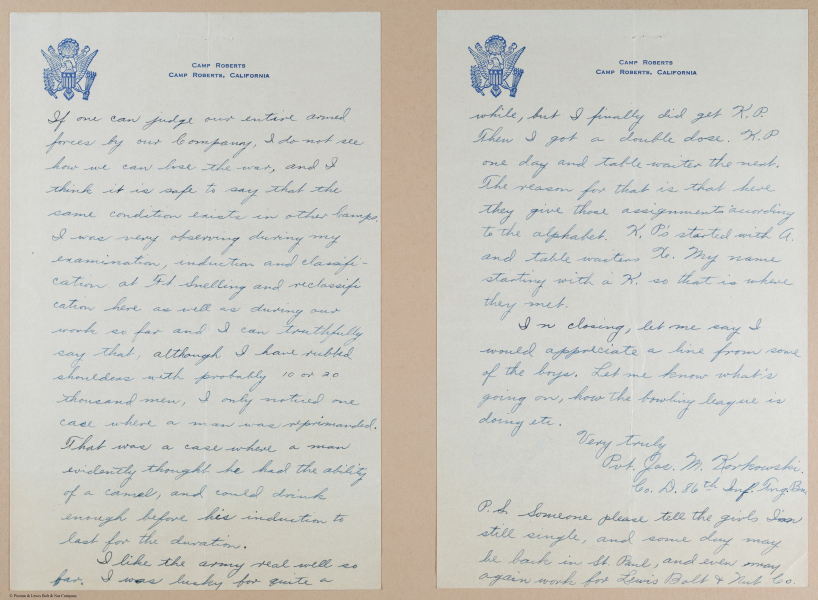 CAMP ROBERTS
CAMP ROBERTS, CALIFORNIA
If one can judge our entire armed
forces by our Company, I do not see
how we can lose the war, and I
think it is safe to say that the
same condition exists in other Camps.
I was very observing during my
examination, induction and classifi-
cation at Ft Snelling and reclassifi
cation here as well as during our
work so far and I can truthfully
say that, although I have rubbed
shoulders with probably 10 or 20
thousand men, I only noticed one
case where a man was reprimanded.
That was a case where a man
evidently thought he had the ability
of a camel, and could drink
enough before his induction to
last for the duration.
I like the army real well so
far. I was lucky for quite a
CAMP ROBERTS
CAMP ROBERTS, CALIFORNIA
while, but I finally did get K.P.
Then I got a double dose. K.P
one day and table waiter the next.
The reason for that is that here
they give those assignments according
to the alphabet. K.P's started with A.
and table waiters Z. My name
starting with a K. so that is where
they met.
In closing, let me say I
would appreciate a line from some
of the boys. Let me know what's
going on, how the bowling league is
doing etc.
Very truly
Pvt. Jos. M. Korkowski.
Co. D. 86th Inf. Tng. Bn.
P.S. Someone please tell the girls I'm
still single, and some day may
be back in St. Paul, and even may
again work for Lewis Bolt & Nut Co.